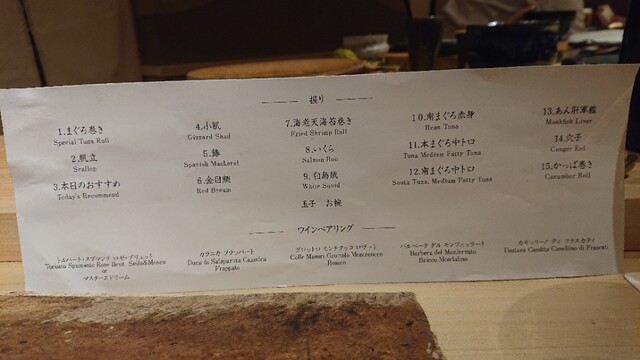 握り
1.まぐろ巻き
Special Tuna Roll
2.帆立
Scallop
3.本日のおすすめ
Today's Recommend
4.小肌
Gizzard Shad
5.鰆
Spanish Mackerel
6.金目鯛
Red Bream
7.海老天海苔巻き
Fried Shrimp Roll
8.いくら
Salmon Roe
9.白烏賊
White Squid
玉子 お椀
10.南まぐろ赤身
Lean Tuna
11.本まぐろ中トロ
Tuna Medium Fatty Tuna
12.南まぐろ中トロ
South Tuna, Medium Fatty Tuna
13.あん肝軍艦
Monkfish Liver
14.穴子
Conger Eel
15.かっぱ巻き
Cucumber Roll
ワインペアリング
Toriano Spumante Rose Brut
or
マスターズドリーム
Duca di Salaparuta Calanica
Frappato
Colle Mattoni
Rosso
バルベーラ デル モンフェッラート
Barbera del Monferrato
Bricco Mondalino
Fontana Candida